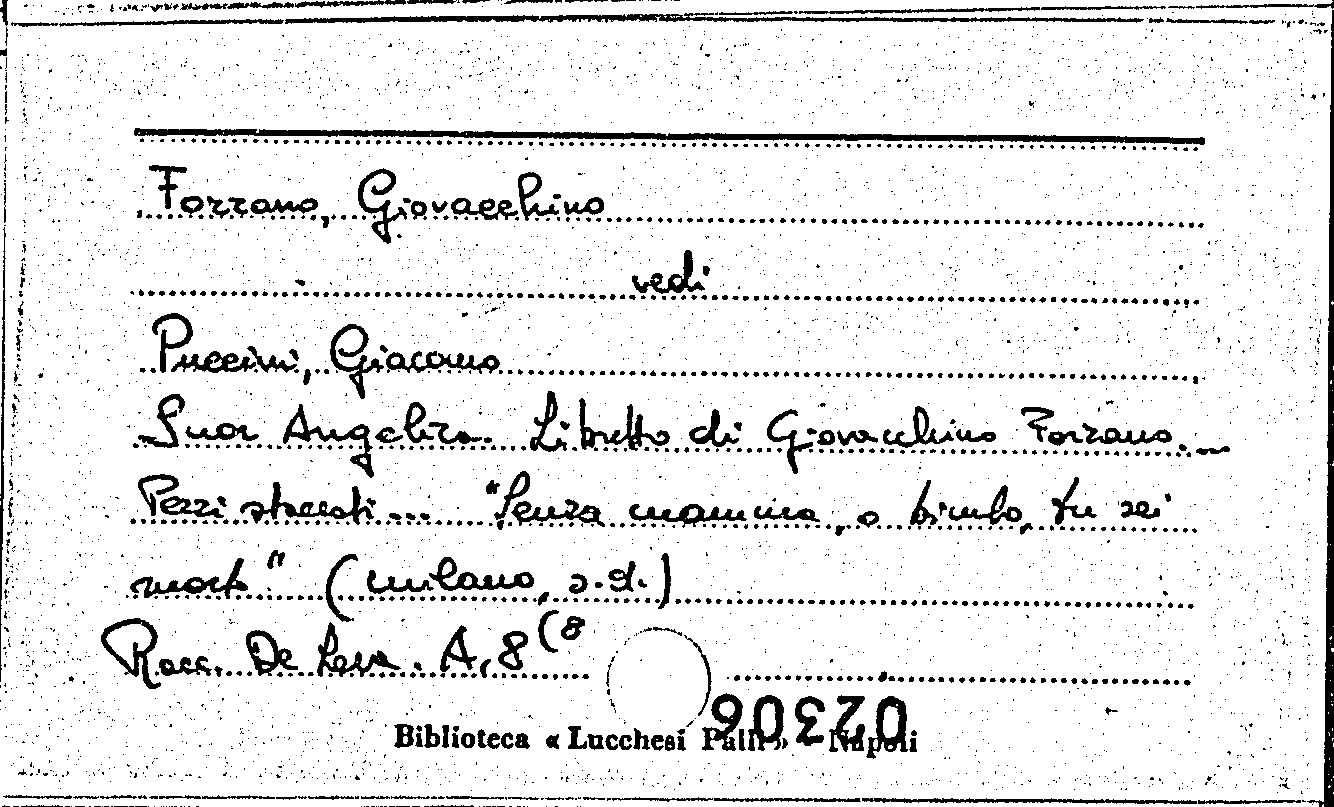 Forzano, Giovacchino
vedi
Puccini, Giacomo
Suor Angelica. Libretto di Giovacchino Forzano. –
Pezzi staccati... "Senza mamma, o bimbo, tu sei
morto" (Milano, s.d.)
Racc. De Leva. A, 8 (8
02306
Biblioteca « Lucchesi Palli » - Napoli